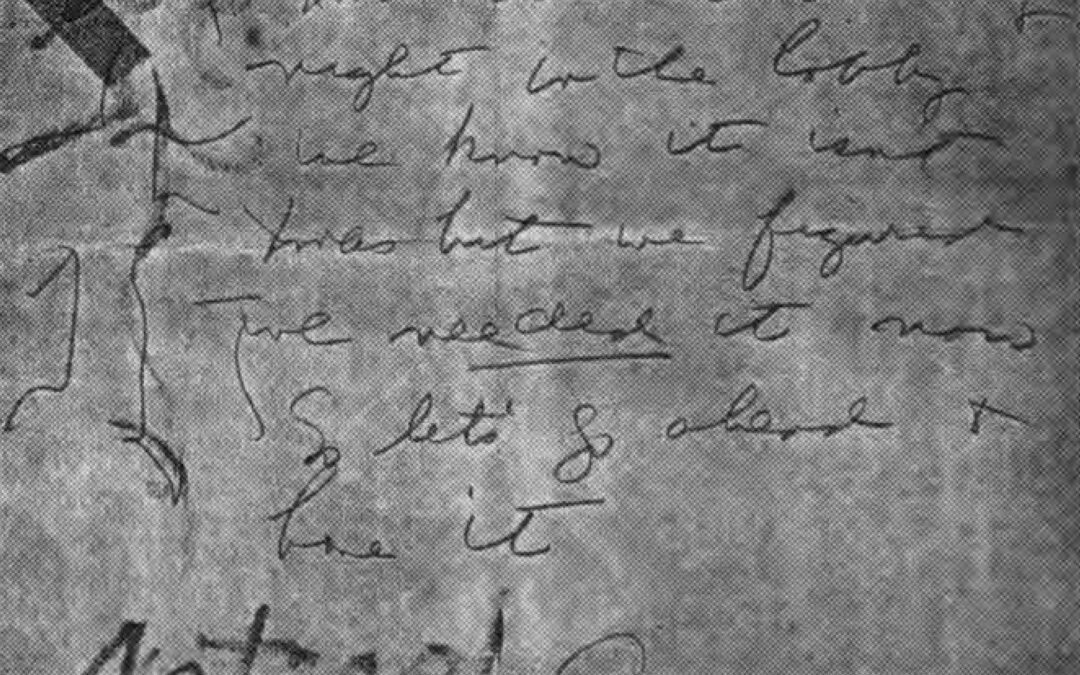 right in the lobby
we know it isnt
Xmas but we figured
we needed it now
So let's go ahead +
have it